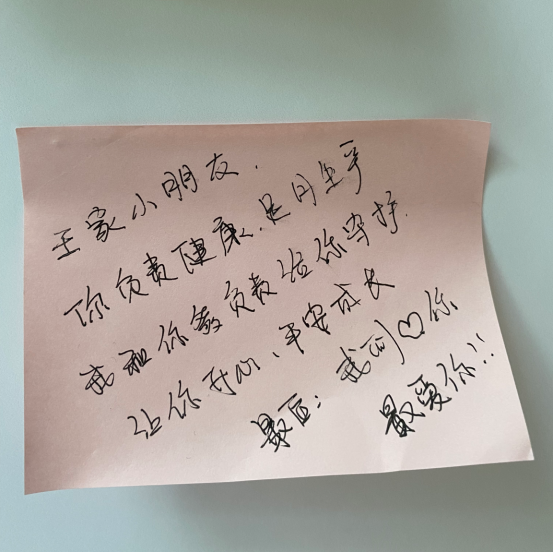 王家小朋友.
你负责健康.足月生平
我和你爹负责给你守护.
让你开心、平安成长
最后: 我们♡你
最爱你!!